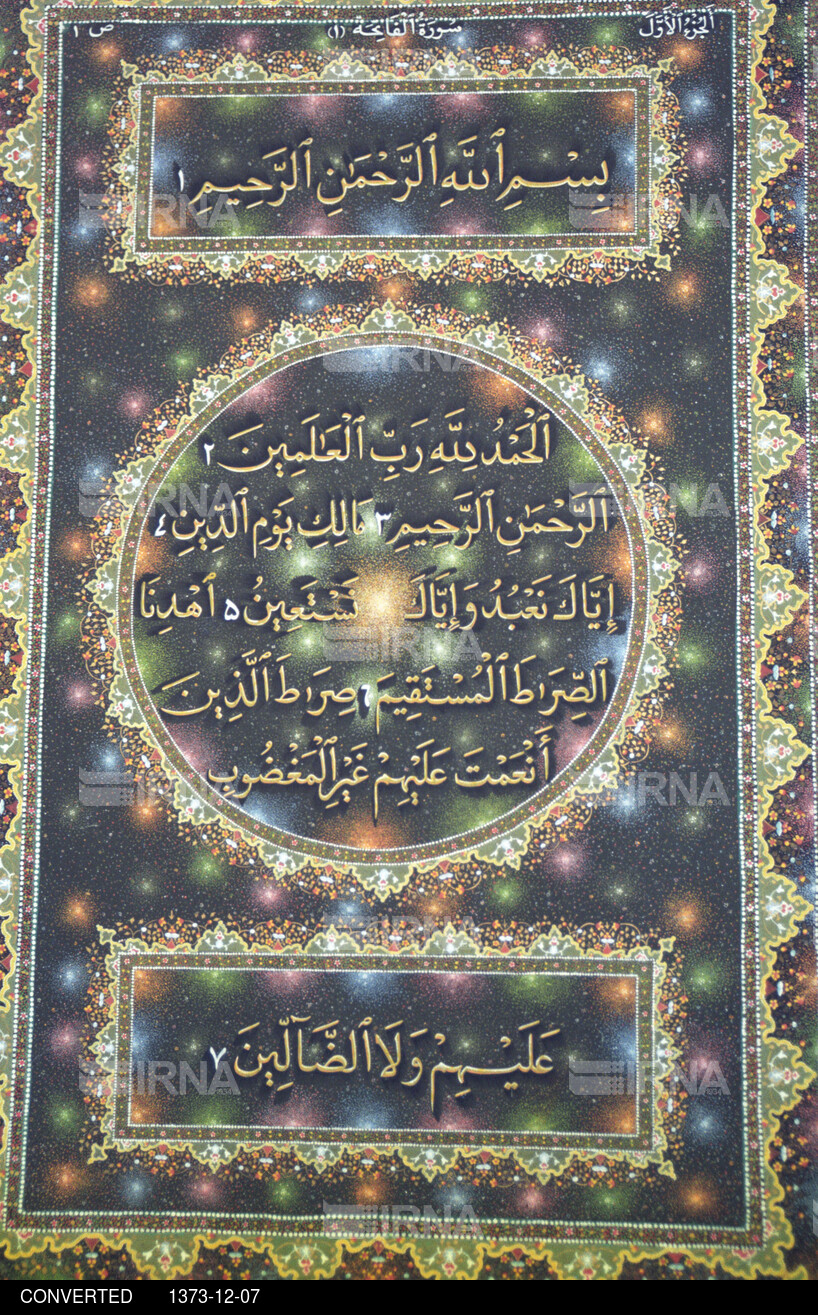 الجزء الأول سورة الفاتحة (١) ص ١
بِسْمِ ٱللَّهِ ٱلرَّحْمَٰنِ ٱلرَّحِيمِ ١
ٱلْحَمْدُ لِلَّهِ رَبِّ ٱلْعَٰلَمِينَ ٢
ٱلرَّحْمَٰنِ ٱلرَّحِيمِ ٣ مَٰلِكِ يَوْمِ ٱلدِّينِ ٤
إِيَّاكَ نَعْبُدُ وَإِيَّاكَ نَسْتَعِينُ ٥ ٱهْدِنَا
ٱلصِّرَٰطَ ٱلْمُسْتَقِيمَ ٦ صِرَٰطَ ٱلَّذِينَ
أَنْعَمْتَ عَلَيْهِمْ غَيْرِ ٱلْمَغْضُوبِ
عَلَيْهِمْ وَلَا ٱلضَّآلِّينَ ٧
IRNA
IRNA
IRNA
IRNA
IRNA
IRNA
IRNA
IRNA
IRNA
IRNA
IRNA
IRNA
CONVERTED 1373-12-07